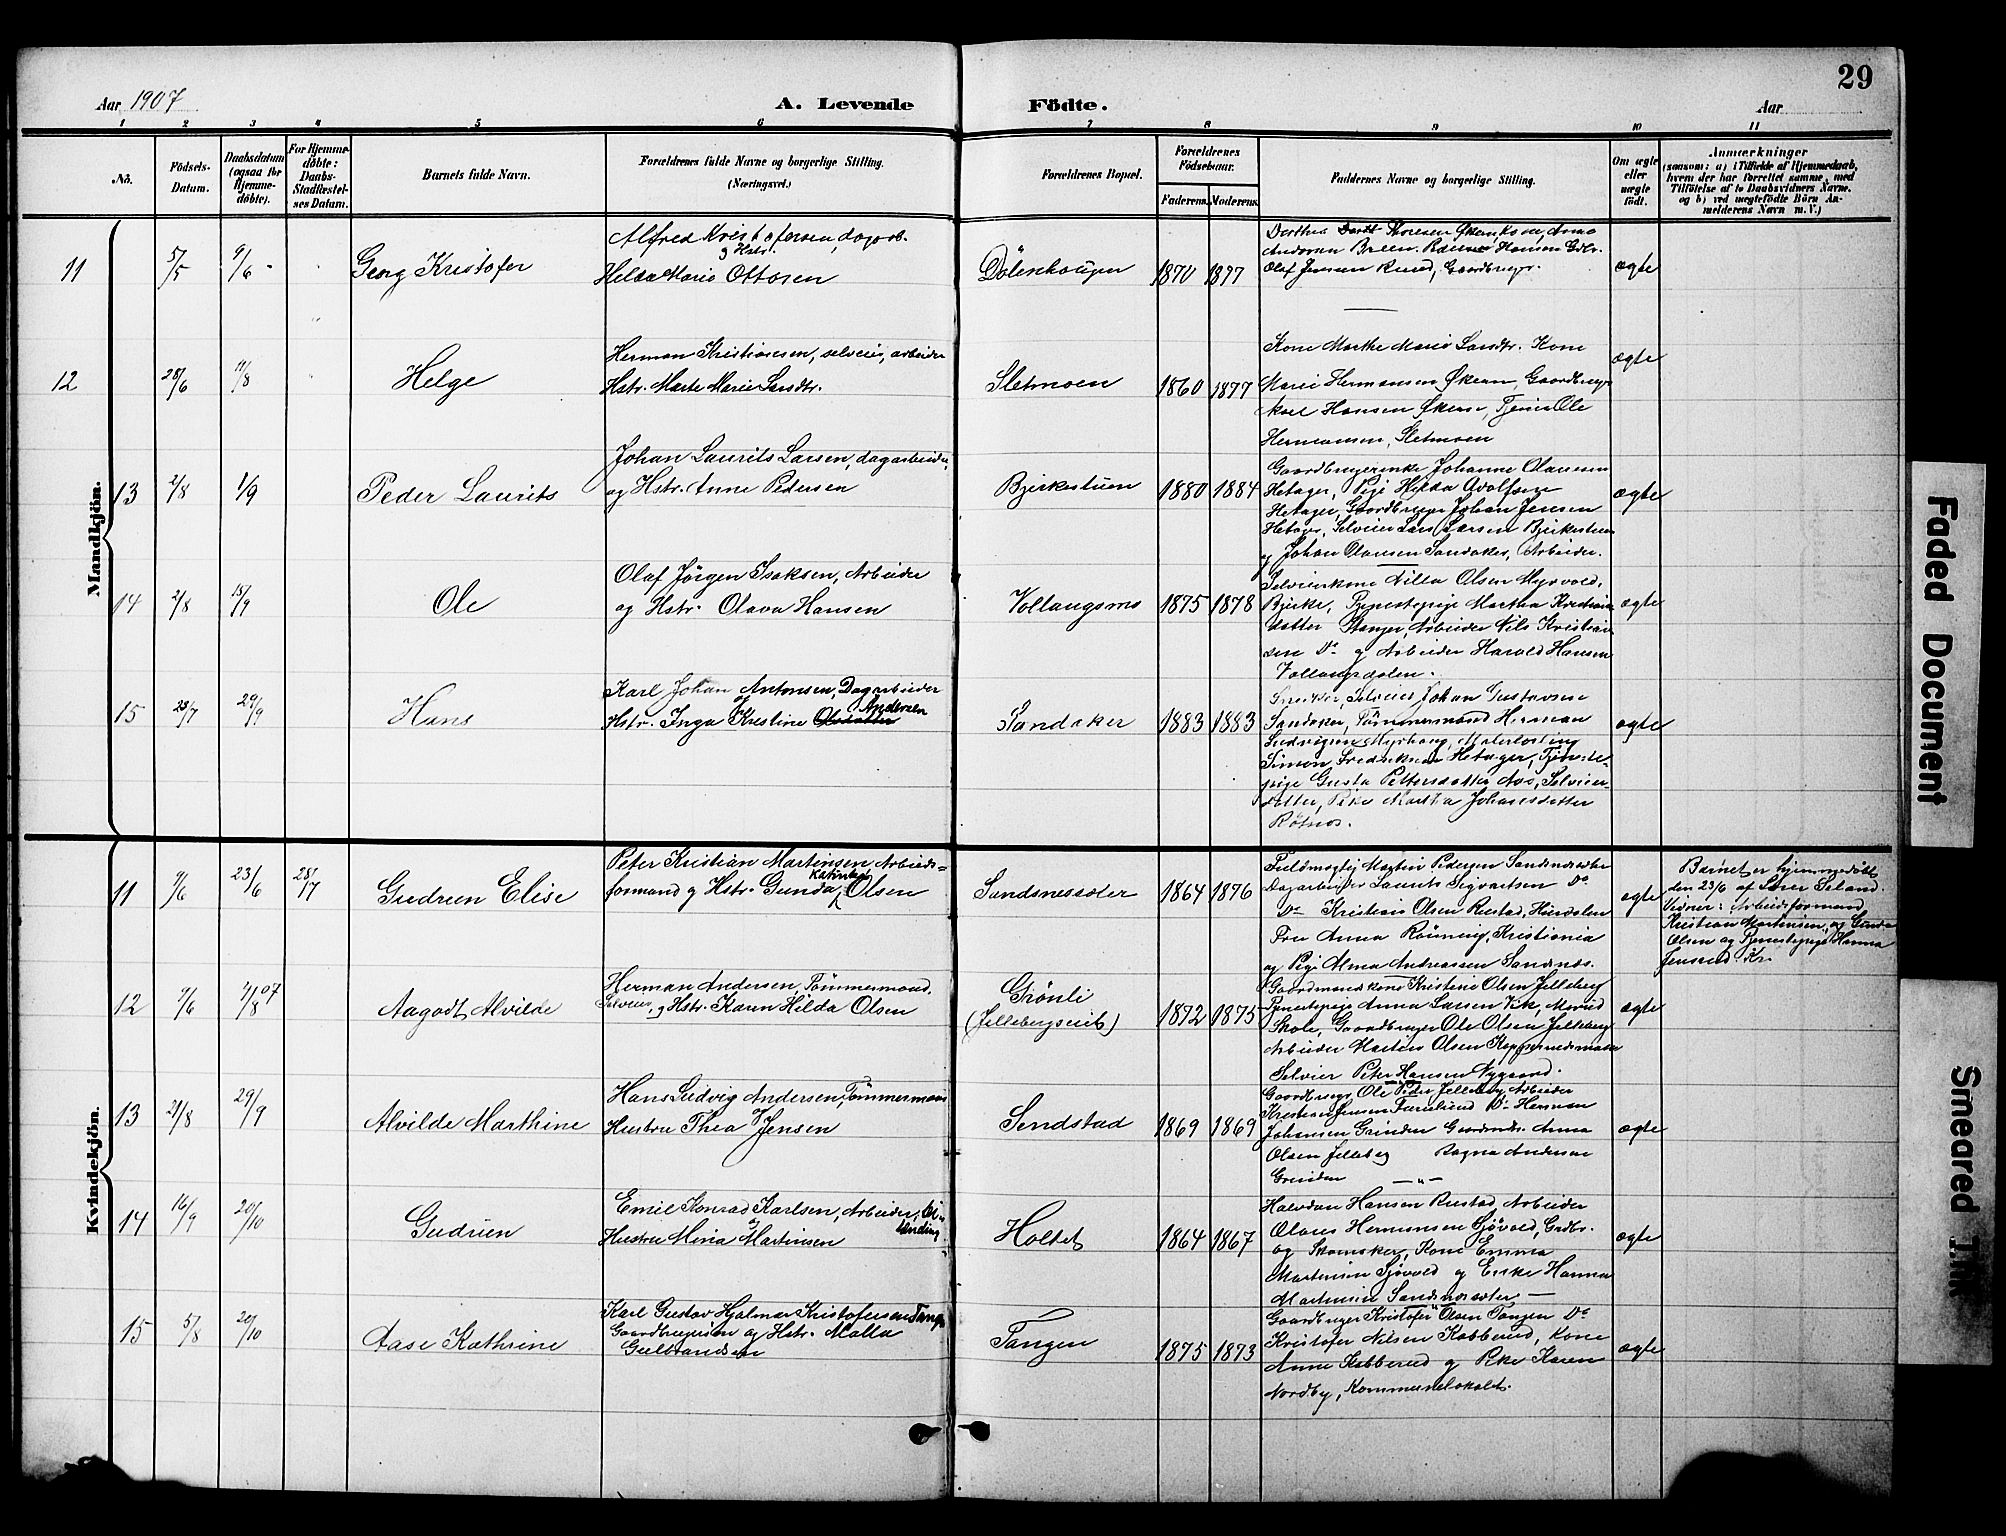 29
Aar 1907 A. Levende Födte. Aar
1 2 3 4 5 6 7 8 9 10 11
No. Födsels-Datum. Daabsdatum (ogsaa for Hjemme-döbte). For Hjemme-döbte: Daabs-Stadfæstel-ses Datum. Barnets fulde Navn. Forældrenes fulde Navne og borgerlige Stilling. (Næringsvei.) Forældrenes Bopæl. Forældrenes Födselsaar. Faderens. Moderens. Faddernes Navne og borgerlige Stilling. Om ægte eller uægte födt. Anmærkninger
(saasom: a) i Tilfælde af Hjemmedaab, hvem der har forrettet samme, med Tilföielse af to Daabsvidners Navne. og b) ved uægtefödte Börn An-melderens Navn m. V.)
Mandkjön.
11 5/5 9/6 Georg Kristofer
Alfred Kristofersen, dagarb.
og Hstr.
Helda Marie Ottosen
Dölenhougen 1870 1877
Olaf Jensen Ruud, Gaardbruger.
ægte
12 28/6 11/8 Helge
Herman Kristiansen, selveier, arbeider
Hstr. Marte Marie Sandtr.
Sletmoen 1860 1877
Kone Marthe Marie Sandtr. Kone
Marie Hermansen Økern, Gaardbruger
Karl Hansen Økern, Tjener Ole
Hermansen, Sletmoen
ægte
13 2/8 1/9 Peder Laurits
Johan Laurits Larsen, dagarbeider,
og Hstr. Anne Pedersen
Bjerkestuen 1880 1884
Gaardbrugerinke Johanne Olavesen
Hetager, Pige Hilda Adolfsen
Hetager, Gaardbruger Johan Jensen
Hetager, Selveier Lars Larsen Bjerkestuen
og Johan Olausen Sandaker, Arbeider.
ægte
14 2/8 15/9 Ole
Olaf Jörgen Isaksen, Arbeider
og Hstr. Olava Hansen
Vollaugsmo 1875 1878
Selveierkone Nilla Olsen Myrvold,
Bjerke, Tjenestepige Martha Kristian
datter Stanger, Arbeider Nils Kristian
sen Do og Arbeider Harald Hansen
Vollaugsdalen.
ægte
15 23/7 29/9 Hans
Karl Johan Antonsen, Dagarbeider
og Andersen
Hstr. Inga Kristine Olsdatter
Sandaker 1883 1883
Snedker, Selveier Johan Gustavsen
Sandaker, Tömmermand Herman
Ludvigsen Myrhaug, Malerlærling
Simon Fredriksen Hetager, Tjeneste-
pige Gusta Pettersdatter Aas, Selveier-
datter, Pike Martha Johansdatter
Rötnes.
ægte
Kvindekjön.
11 9/6 23/6 28/7 Gudrun Elise
Peter Kristian Martinsen Arbeids-
Katinka
formand og Hstr. Gunda Olsen
Sandnessæter 1864 1876
Fuldmægtig Martin Pedersen Sandnessæter
Dagarbeider Laurits Sigvartsen Do
Do Kristian Olsen Rustad, Hurdalen
Fru Anna Rönning, Kristiania
og Pige Alma Andreassen Sandnes.
ægte
Barnet er hjemmedöbt
den 23/6 af Lærer Seland.
Vidner: Arbeidsformand
Kristian Martinsen, og Gunda
Olsen og Tjenestepige Hanna
Jensrud Kr.
12 7/6 4/8 07 Aagodt Alvilde
Herman Andersen, Tömmermand,
Selveier, og Hstr. Karen Hilda Olsen
Grönli
(Jellebergseiet) 1872 1875
Gaardmandskone Kristine Olsen Jelleberg
Tjenestepige Anna Larsen Vik, Movind
Skole, Gaardbruger Ole Olsen Jelleberg
Arbeider Martin Olsen Koppernedsmoen
Selveier Peter Hansen Nygaard.
ægte
13 21/8 29/9 Alvilde Marthine
Hans Ludvig Andersen, Tömmermand
Hustru Thea Jensen
Sendstad 1869 1869
Gaardbruger Ole Peder Jelleberg, Arbeider
Kristian Jensen Furulund Do Herman
Johansen Grinden Gaardmdr. Anna
Olsen Jelleberg Ragna Andersen
Grinden — " —
ægte
14 16/9 20/10 Gudrun
Emil Konrad Karlsen, Arbeider,
Hustru Mina Martinsen
Holtet 1864 1867
Halvdan Hansen Rustad, Arbeider
Olaves Hermansen Sjövold, Grdbr.
og Skomaker, Kone Emma
Martinsen Sjövold og Enke Hanna
Martinsen Sandnessæter —
ægte
15 5/8 20/10 Aase Kathrine
Karl Gustav Hjalmar Kristofersen Tangen
Gaardbrugersön og Hstr. Malla
Gulbrandsen
Tangen 1875 1873
Gaardbruger Kristofer Olsen Tangen Do
Kristofer Nilsen Kabberud, Kone
Anne Kabberud og Pike Karen
Nordby, Kommunelokalet.
ægte
Faded Document
Smeared Ink